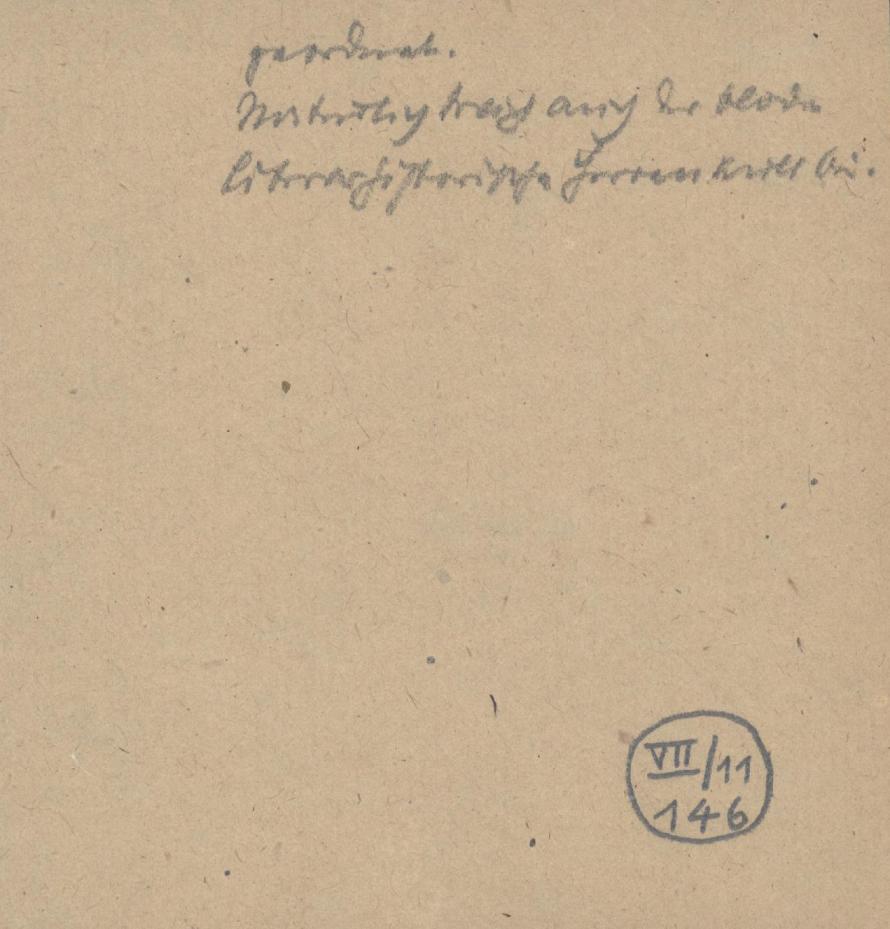 geordnet.
Natürlich trägt auch der blöde
literarhistorische Heroenkult bei.
VII/11
146